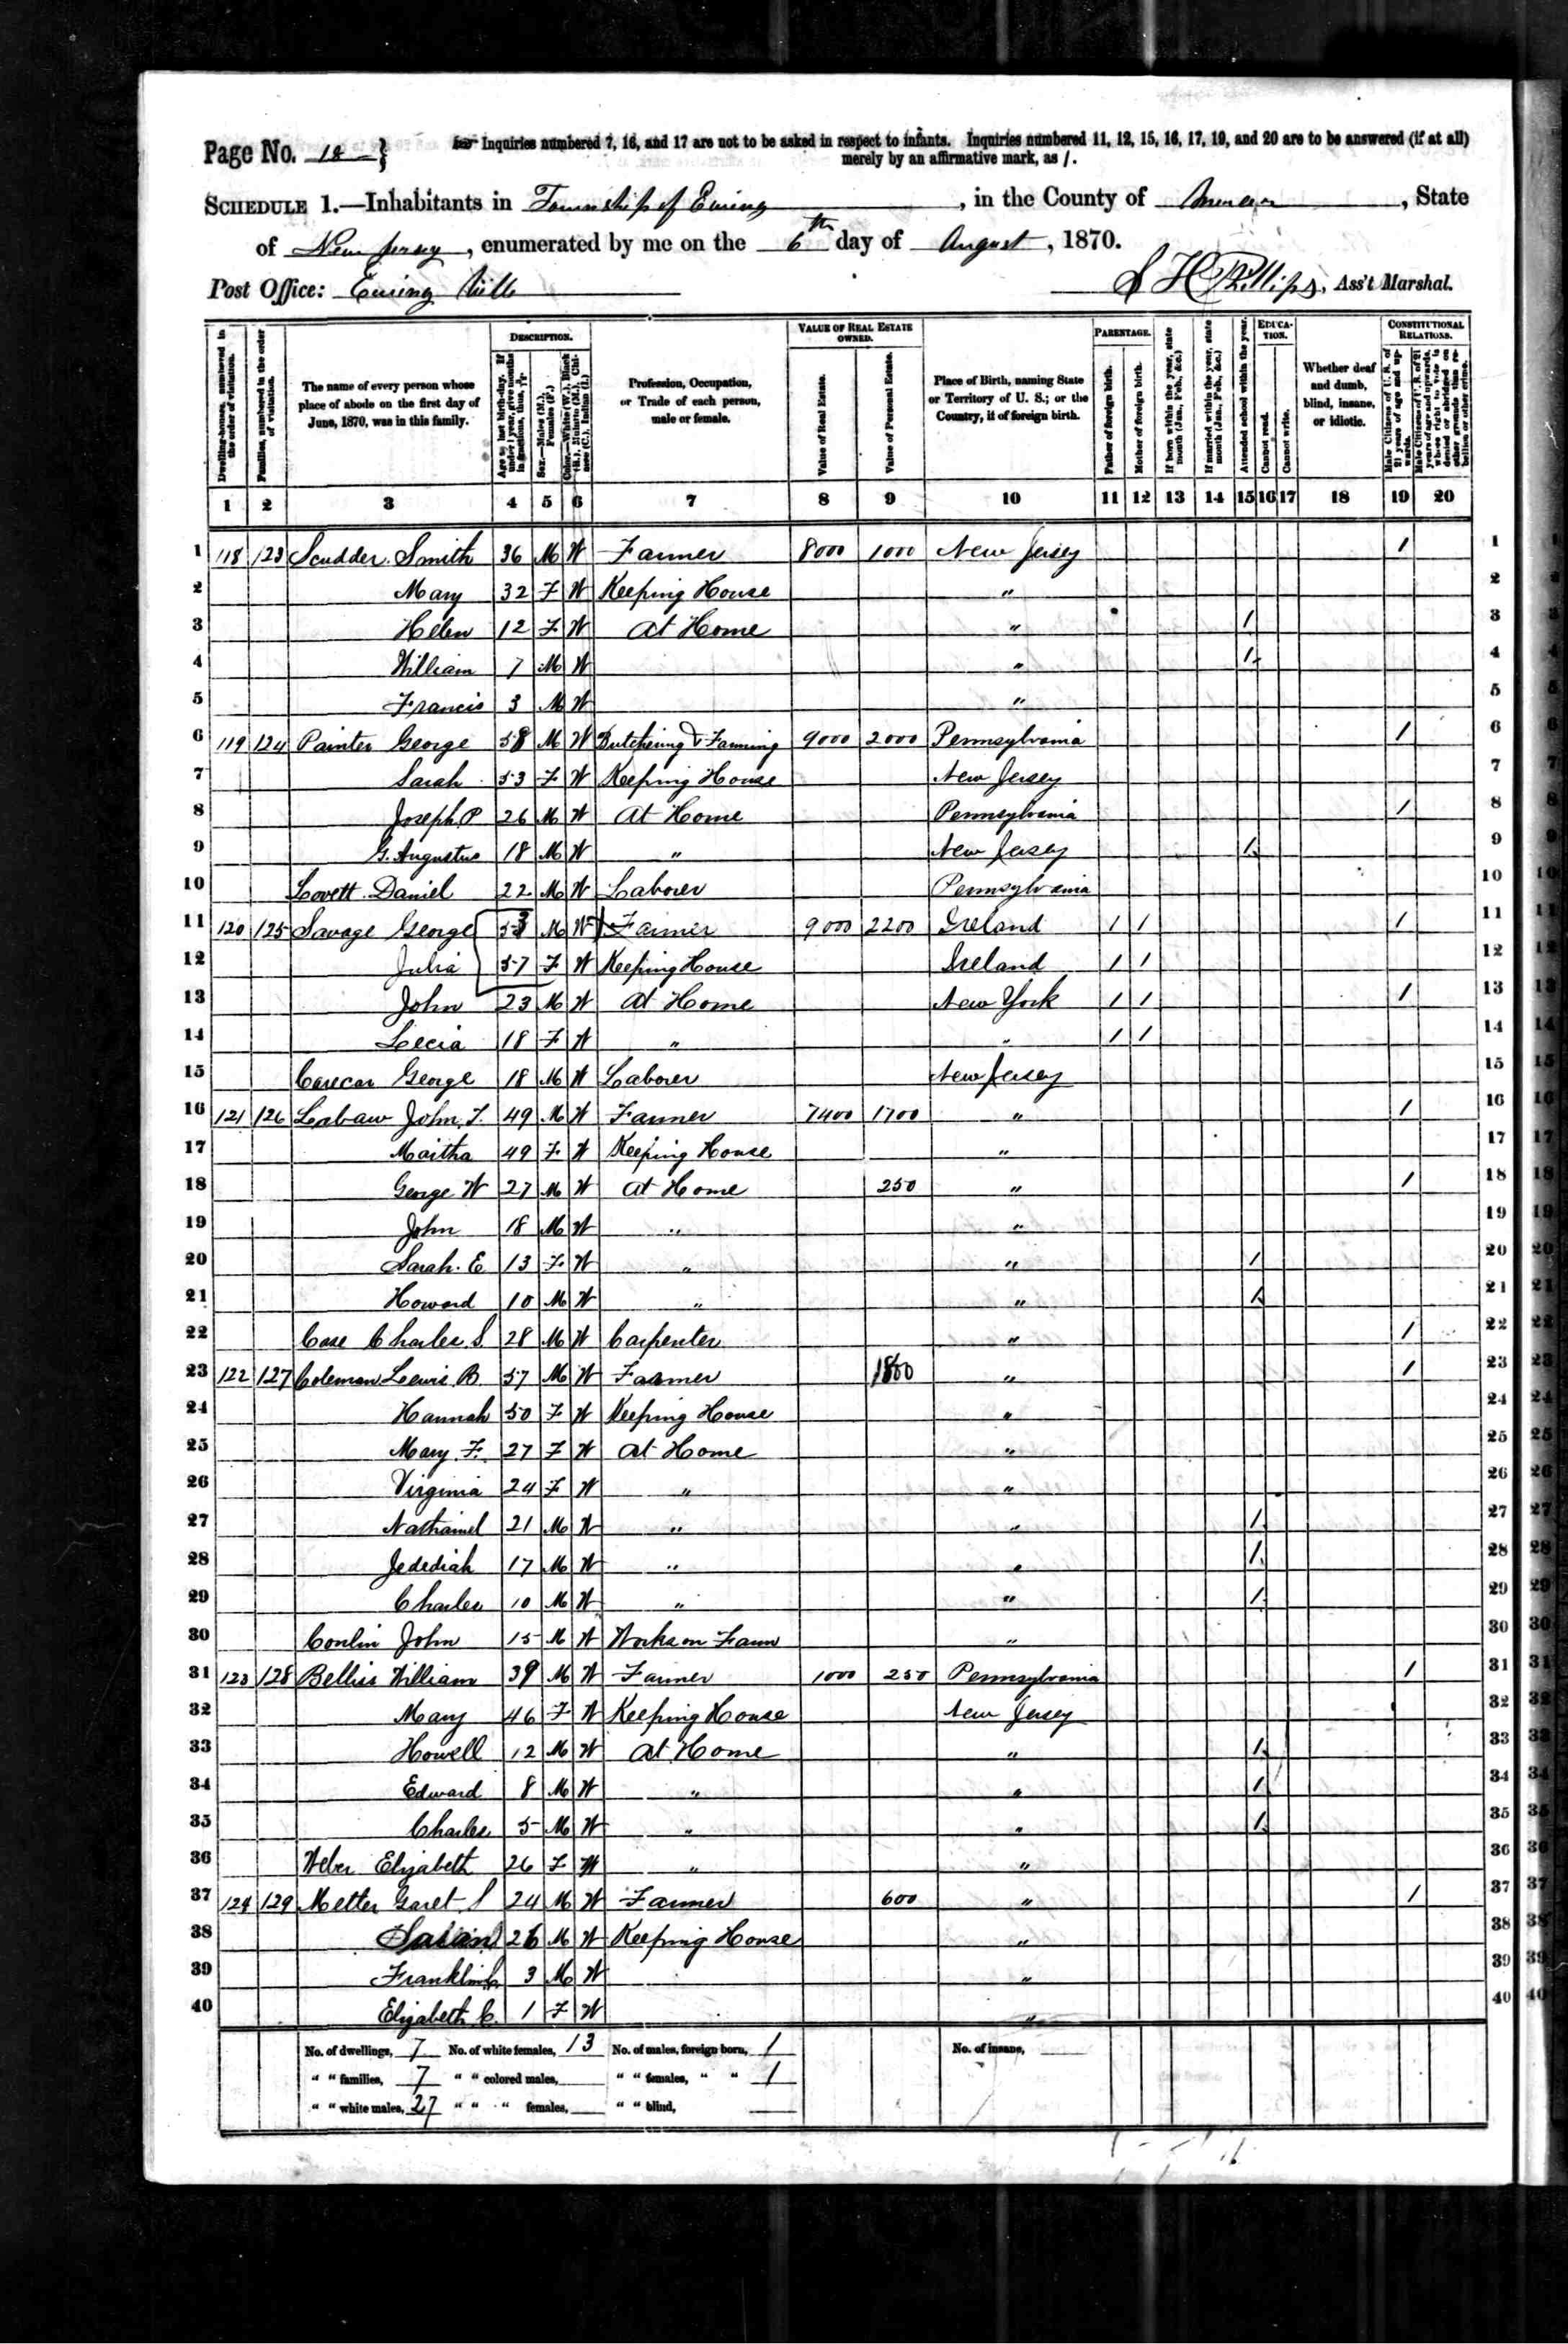 Page No. 18 } Inquiries numbered 7, 16, and 17 are not to be asked in respect to infants. Inquiries numbered 11, 12, 15, 16, 17, 19, and 20 are to be answered (if at all)
merely by an affirmative mark, as /.
SCHEDULE 1.—Inhabitants in Township of Ewing, in the County of Mercer, State
of New Jersey, enumerated by me on the 6th day of August, 1870.
Post Office: Ewing S H Phillips, Ass't Marshal.
Dwelling-houses, numbered in the order of visitation. Families, numbered in the order of visitation. The name of every person whose place of abode on the first day of June, 1870, was in this family. DESCRIPTION. Age at last birth-day. If under 1 year, give months in fractions, thus, Sex.—Males (M.), Females (F.) Color.—White (W.), Black (B.), Mulatto (M.), Chinese (C.), Indian (I.) Profession, Occupation, or Trade of each person, male or female. VALUE OF REAL ESTATE OWNED. Value of Real Estate. Value of Personal Estate. Place of Birth, naming State or Territory of U. S.; or the Country, if of foreign birth. PARENTAGE. Father of foreign birth. Mother of foreign birth. If born within the year, state month (Jan., Feb., &c.) If married within the year, state month (Jan., Feb., &c.) Attended school within the year. EDUCATION. Cannot read. Cannot write. Whether deaf and dumb, blind, insane, or idiotic. CONSTITUTIONAL RELATIONS. Male Citizens of U. S. of 21 years of age and upwards. Male Citizens of U. S. of 21 years of age and upwards, whose right to vote is denied or abridged on other grounds than rebellion or other crime.
1 2 3 4 5 6 7 8 9 10 11 12 13 14 15 16 17 18 19 20
1 118 123 Scudder Smith 36 M W Farmer 8000 1000 New Jersey 1 1
2 Mary 32 F W Keeping House " 2
3 Helen 12 F W At Home " 1 3
4 William 7 M W " 1 4
5 Francis 3 M W " 5
6 119 124 Painter George 58 M W Butchering & Farming 9000 2000 Pennsylvania 1 6
7 Sarah 53 F W Keeping House New Jersey 7
8 Joseph P 26 M W At Home Pennsylvania 1 8
9 G. Augustus 18 M W " New Jersey 1 9
10 Lovett Daniel 22 M W Laborer Pennsylvania 10
11 120 125 Savage George 53 M W Farmer 9000 2200 Ireland 1 1 1 11
12 Julia 57 F W Keeping House Ireland 1 1 12
13 John 23 M W At Home New York 1 1 1 13
14 Lecia 18 F W " " 1 1 14
15 George 18 M W Laborer New Jersey 15
16 121 126 Labaw John T. 49 M W Farmer 7400 1700 " 1 16
17 Martha 49 F W Keeping House " 17
18 George W 27 M W At Home 250 " 1 18
19 John 18 M W " " 19
20 Sarah E 13 F W " " 1 20
21 Howard 10 M W " " 1 21
22 Case Charles S. 28 M W Carpenter " 1 22
23 122 127 Coleman Lewis B. 57 M W Farmer 1800 " 1 23
24 Hannah 50 F W Keeping House " 24
25 Mary F. 27 F W At Home " 25
26 Virginia 24 F W " " 26
27 Nathaniel 21 M W " " 1 27
28 Jedediah 17 M W " " 1 28
29 Charles 10 M W " " 1 29
30 Conlin John 15 M W Works on Farm " 30
31 123 128 Bellis William 39 M W Farmer 1000 250 Pennsylvania 1 31
32 Mary 46 F W Keeping House New Jersey 32
33 Howell 12 M W At Home " 1 33
34 Edward 8 M W " " 1 34
35 Charles 5 M W " " 1 35
36 Weber Elizabeth 26 F W " " 36
37 124 129 Metter Garet S 24 M W Farmer 600 " 1 37
38 26 M W Keeping House " 38
39 Franklin 3 M W " 39
40 Elizabeth C. 1 F W " 40
No. of dwellings, 7 No. of white females, 13 No. of males, foreign born, 1 No. of insane,
" " families, 7 " " colored males, " " females, " " 1
" " white males, 27 " " " females, " " blind,